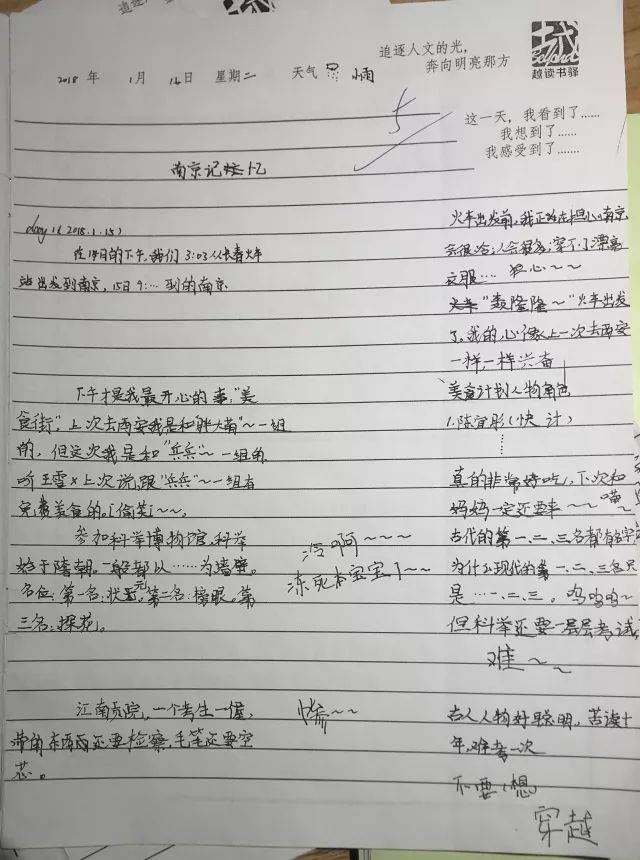 追逐
追逐人文的光，
奔向明亮那方
越读书驿
2018 年 1 月 16 日 星期二 天气 小雨
5
这一天，我看到了……
我想到了……
我感受到了……
南京记忆
day 1 (2018.1.15)
在14日的下午，我们 3:03 从长春火车
站出发到南京，15日 9:… 到的南京
下午才是我最开心的事，“美
食街”，上次去西安我是和“胖大萌”~一组
的，但这次我是和“兵兵”~一组的
听王雪×上次说，跟“兵兵”~一组有
免费美食的。[偷笑]~~。
参加科举博物馆，科举
始于隋朝。一般都以……为墙壁。
名位：第一名：状元，第二名：榜眼。第
三名：探花。
江南贡院，一个考生一屋，
带的东西还要检察，毛笔还要空
芯。
冷啊~~~
冻死本宝宝了~~
火车出发前，我正在担心：南京
会很冷；人会很多；穿不了漂亮
衣服… 担心~~
“轰隆隆~”火车出发
了。我的心像上一次去西安
一样，一样兴奋
美食计划人物角色
1.陈宜彤（快 计）
……
真的非常好吃，下次和
妈妈一定还要来~~喵~
古代的第一、二、三名都有名字
为什么现代的第一、二、三名只
是…一、二、三。呜呜呜~
但科举还要一层层考试，
难~~
古人人物好聪明，苦读十
年，难考一次
不要（想）
穿越